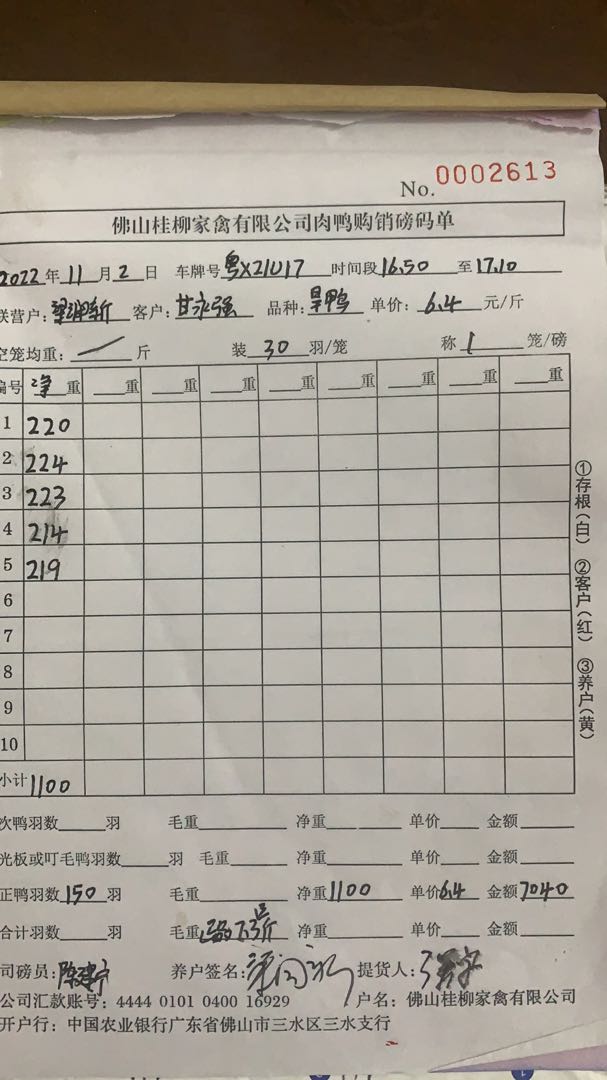 No. 0002613
佛山桂柳家禽有限公司肉鸭购销磅码单
2022年11月2日 车牌号粤X21U17 时间段16.50至17.10
联营户: 客户:甘永强 品种:旱鸭 单价:6.4元/斤
空笼均重: 斤 装30羽/笼 称1笼/磅
编号 净重 重 重 重 重 重 重 重 重
1 220
2 224
3 223
4 214
5 219
6
7
8
9
10
小计 1100
①存根(白) ②客户(红) ③养户(黄)
次鸭羽数 羽 毛重 净重 单价 金额
光板或叮毛鸭羽数 羽 毛重 净重 单价 金额
正鸭羽数150羽 毛重 净重1100 单价6.4 金额7040
合计羽数 羽 毛重 净重 单价 金额
司磅员: 养户签名: 提货人:
公司汇款账号: 4444 0101 0400 16929 户名: 佛山桂柳家禽有限公司
开户行: 中国农业银行广东省佛山市三水区三水支行